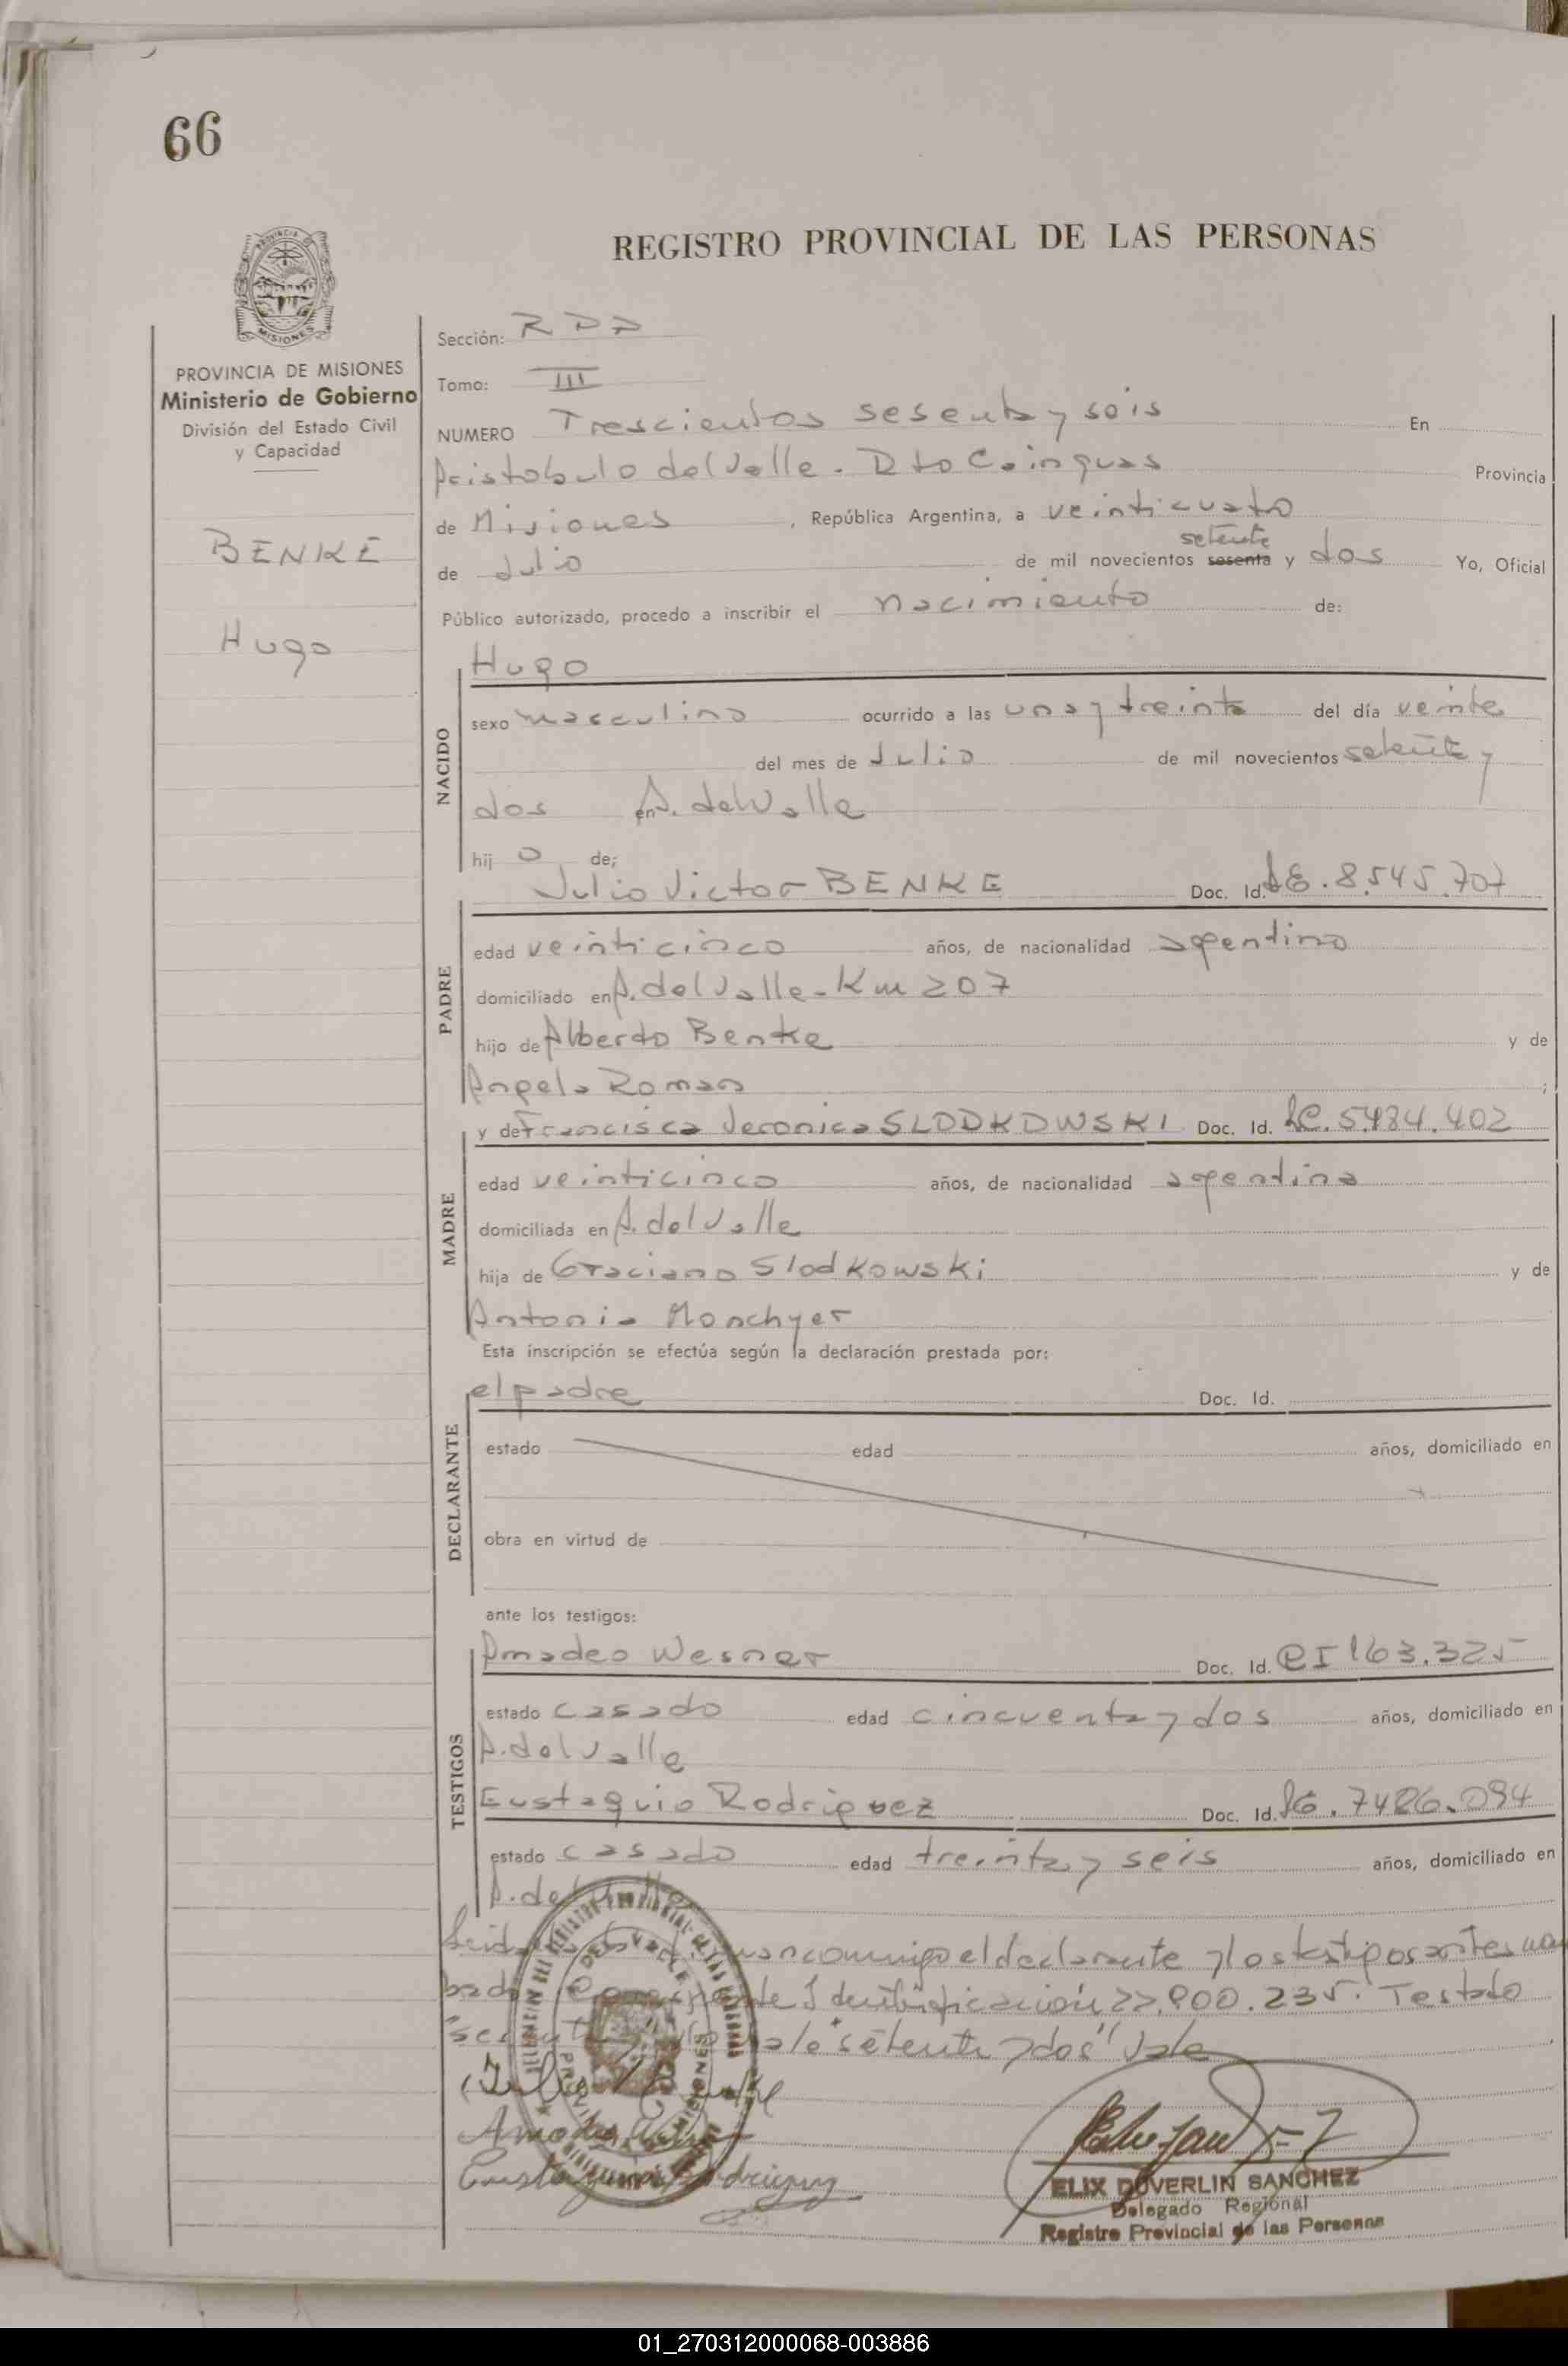 66
REGISTRO PROVINCIAL DE LAS PERSONAS
PROVINCIA DE MISIONES
Ministerio de Gobierno
División del Estado Civil
y Capacidad
BENKE
Hugo
Sección: RDD
Tomo: III
NUMERO Trescientos sesenta y seis En
Aristobulo del Valle. Dto Cainguas Provincia
de Misiones, República Argentina, a veinticuatro
setenta
de Julio de mil novecientos sesenta y dos Yo, Oficial
Público autorizado, procedo a inscribir el nacimiento de:
NACIDO
Hugo
sexo masculino ocurrido a las una y treinta del día veinte
del mes de Julio de mil novecientos setenta y
dos en A. del Valle
hij o de;
PADRE
Julio Victor BENKE Doc. Id. LE. 8.545.707
edad veinticinco años, de nacionalidad argentino
domiciliado en A. del Valle - Km 207
hijo de Alberto Benke y de
Angela Roman;
MADRE
y de Francisca Veronica SLODKOWSKI Doc. Id. LC. 5.484.402
edad veinticinco años, de nacionalidad argentina
domiciliada en A. del Valle
hija de Graciano Slodkowski y de
Antonia Monchyer
Esta inscripción se efectúa según la declaración prestada por:
DECLARANTE
el padre Doc. Id.
estado edad años, domiciliado en
obra en virtud de
ante los testigos:
TESTIGOS
Amadeo Wesner Doc. Id. CI 163.325
estado casado edad cincuenta y dos años, domiciliado en
A. del Valle
Eustaquio Rodriguez Doc. Id. LE. 7486.094
estado casado edad treinta y seis años, domiciliado en
A. del Valle
conmigo el declarante y los testigos antes
Identificación 22.900.235. Testado
"setenta y dos" Vale
Eustaquio Rodriguez
ELIX DUVERLIN SANCHEZ
Delegado Regional
Registro Provincial de las Personas
01_270312000068-003886